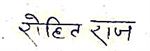 रोहित राज